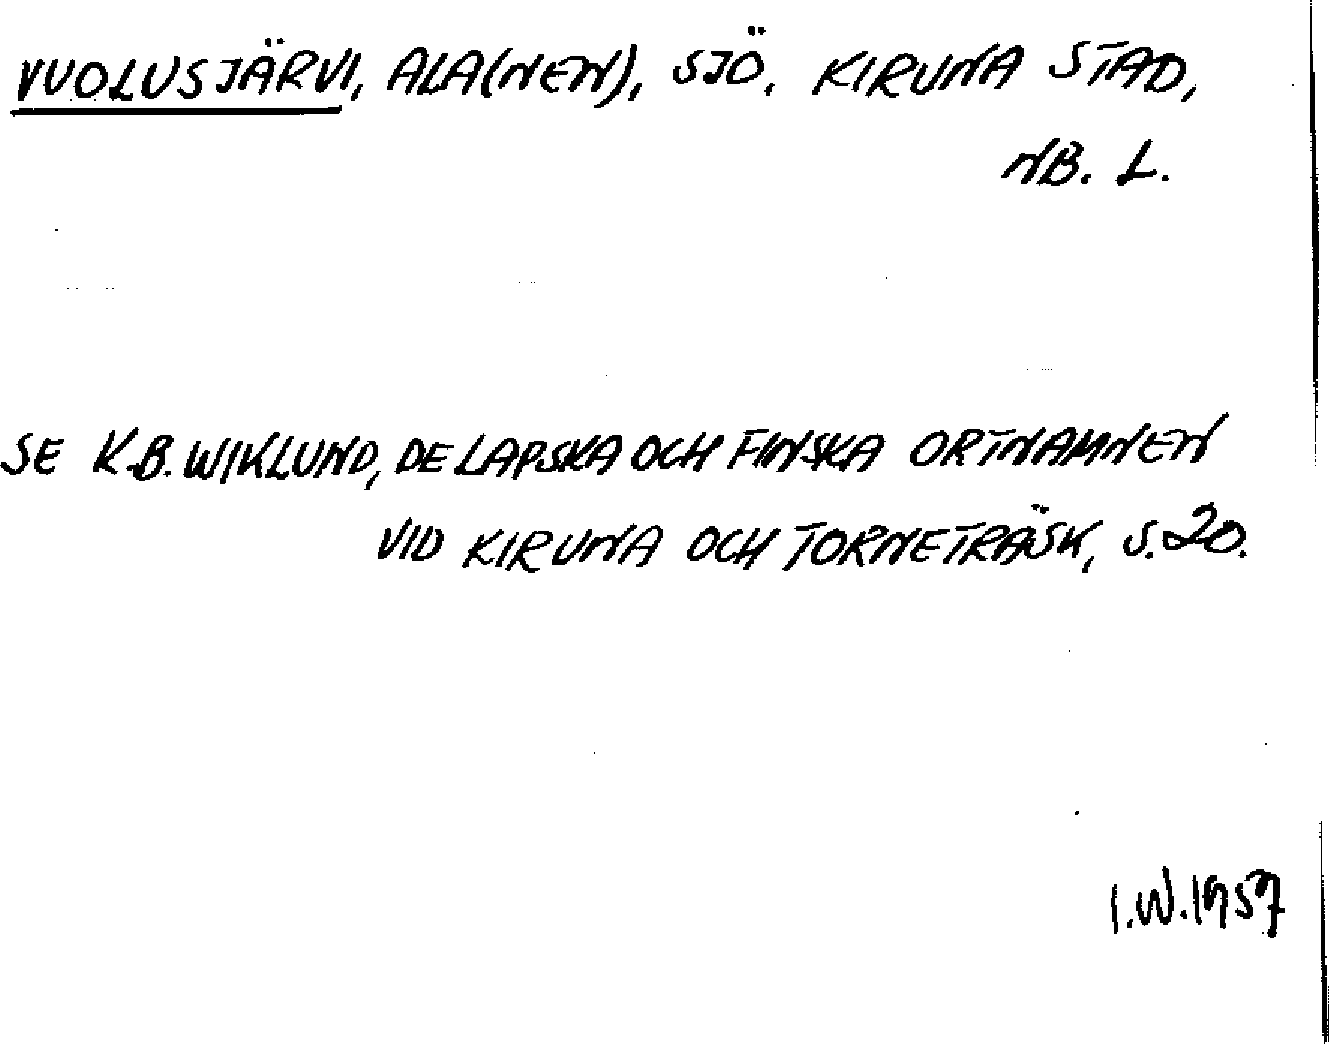 VUOLUSJÄRVI, ALA(NEN), SJÖ. KIRUNA STAD,
NB. L.
SE K.B. WIKLUND, DE LAPSKA OCH FINSKA ORTNAMNEN
VID KIRUNA OCH TORNETRÄSK, S. 20.
I.W. 1957